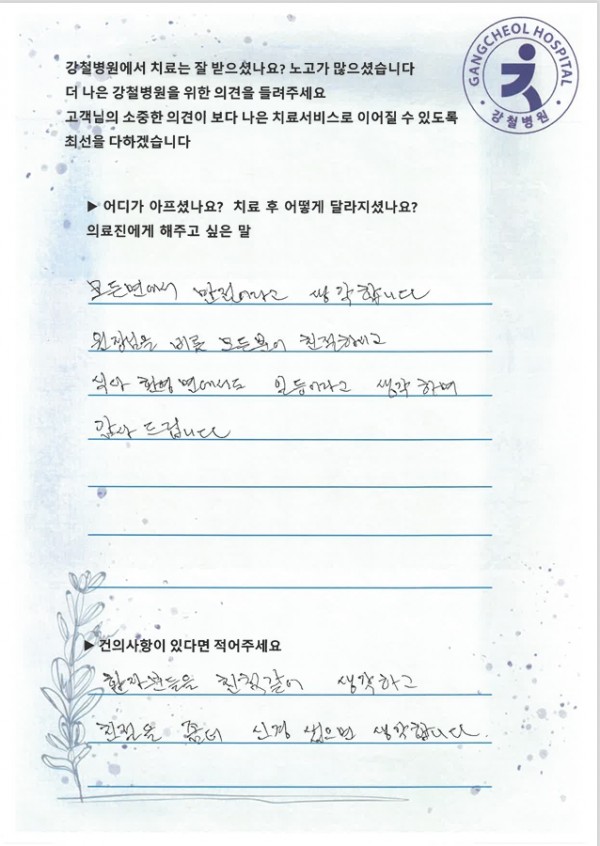 GANGCHEOL HOSPITAL
강철병원
강철병원에서 치료는 잘 받으셨나요? 노고가 많으셨습니다
더 나은 강철병원을 위한 의견을 들려주세요
고객님의 소중한 의견이 보다 나은 치료서비스로 이어질 수 있도록
최선을 다하겠습니다
▶ 어디가 아프셨나요? 치료 후 어떻게 달라지셨나요?
의료진에게 해주고 싶은 말
모든면에서 만점이라고 생각합니다
원장님을 비롯 모든분이 친절하시고
식사 환경면에서도 일등이라고 생각하며
감사 드립니다
▶ 건의사항이 있다면 적어주세요
환자분들을 친척같이 생각하고
친절을 좀더 신경 썼으면 생각합니다.